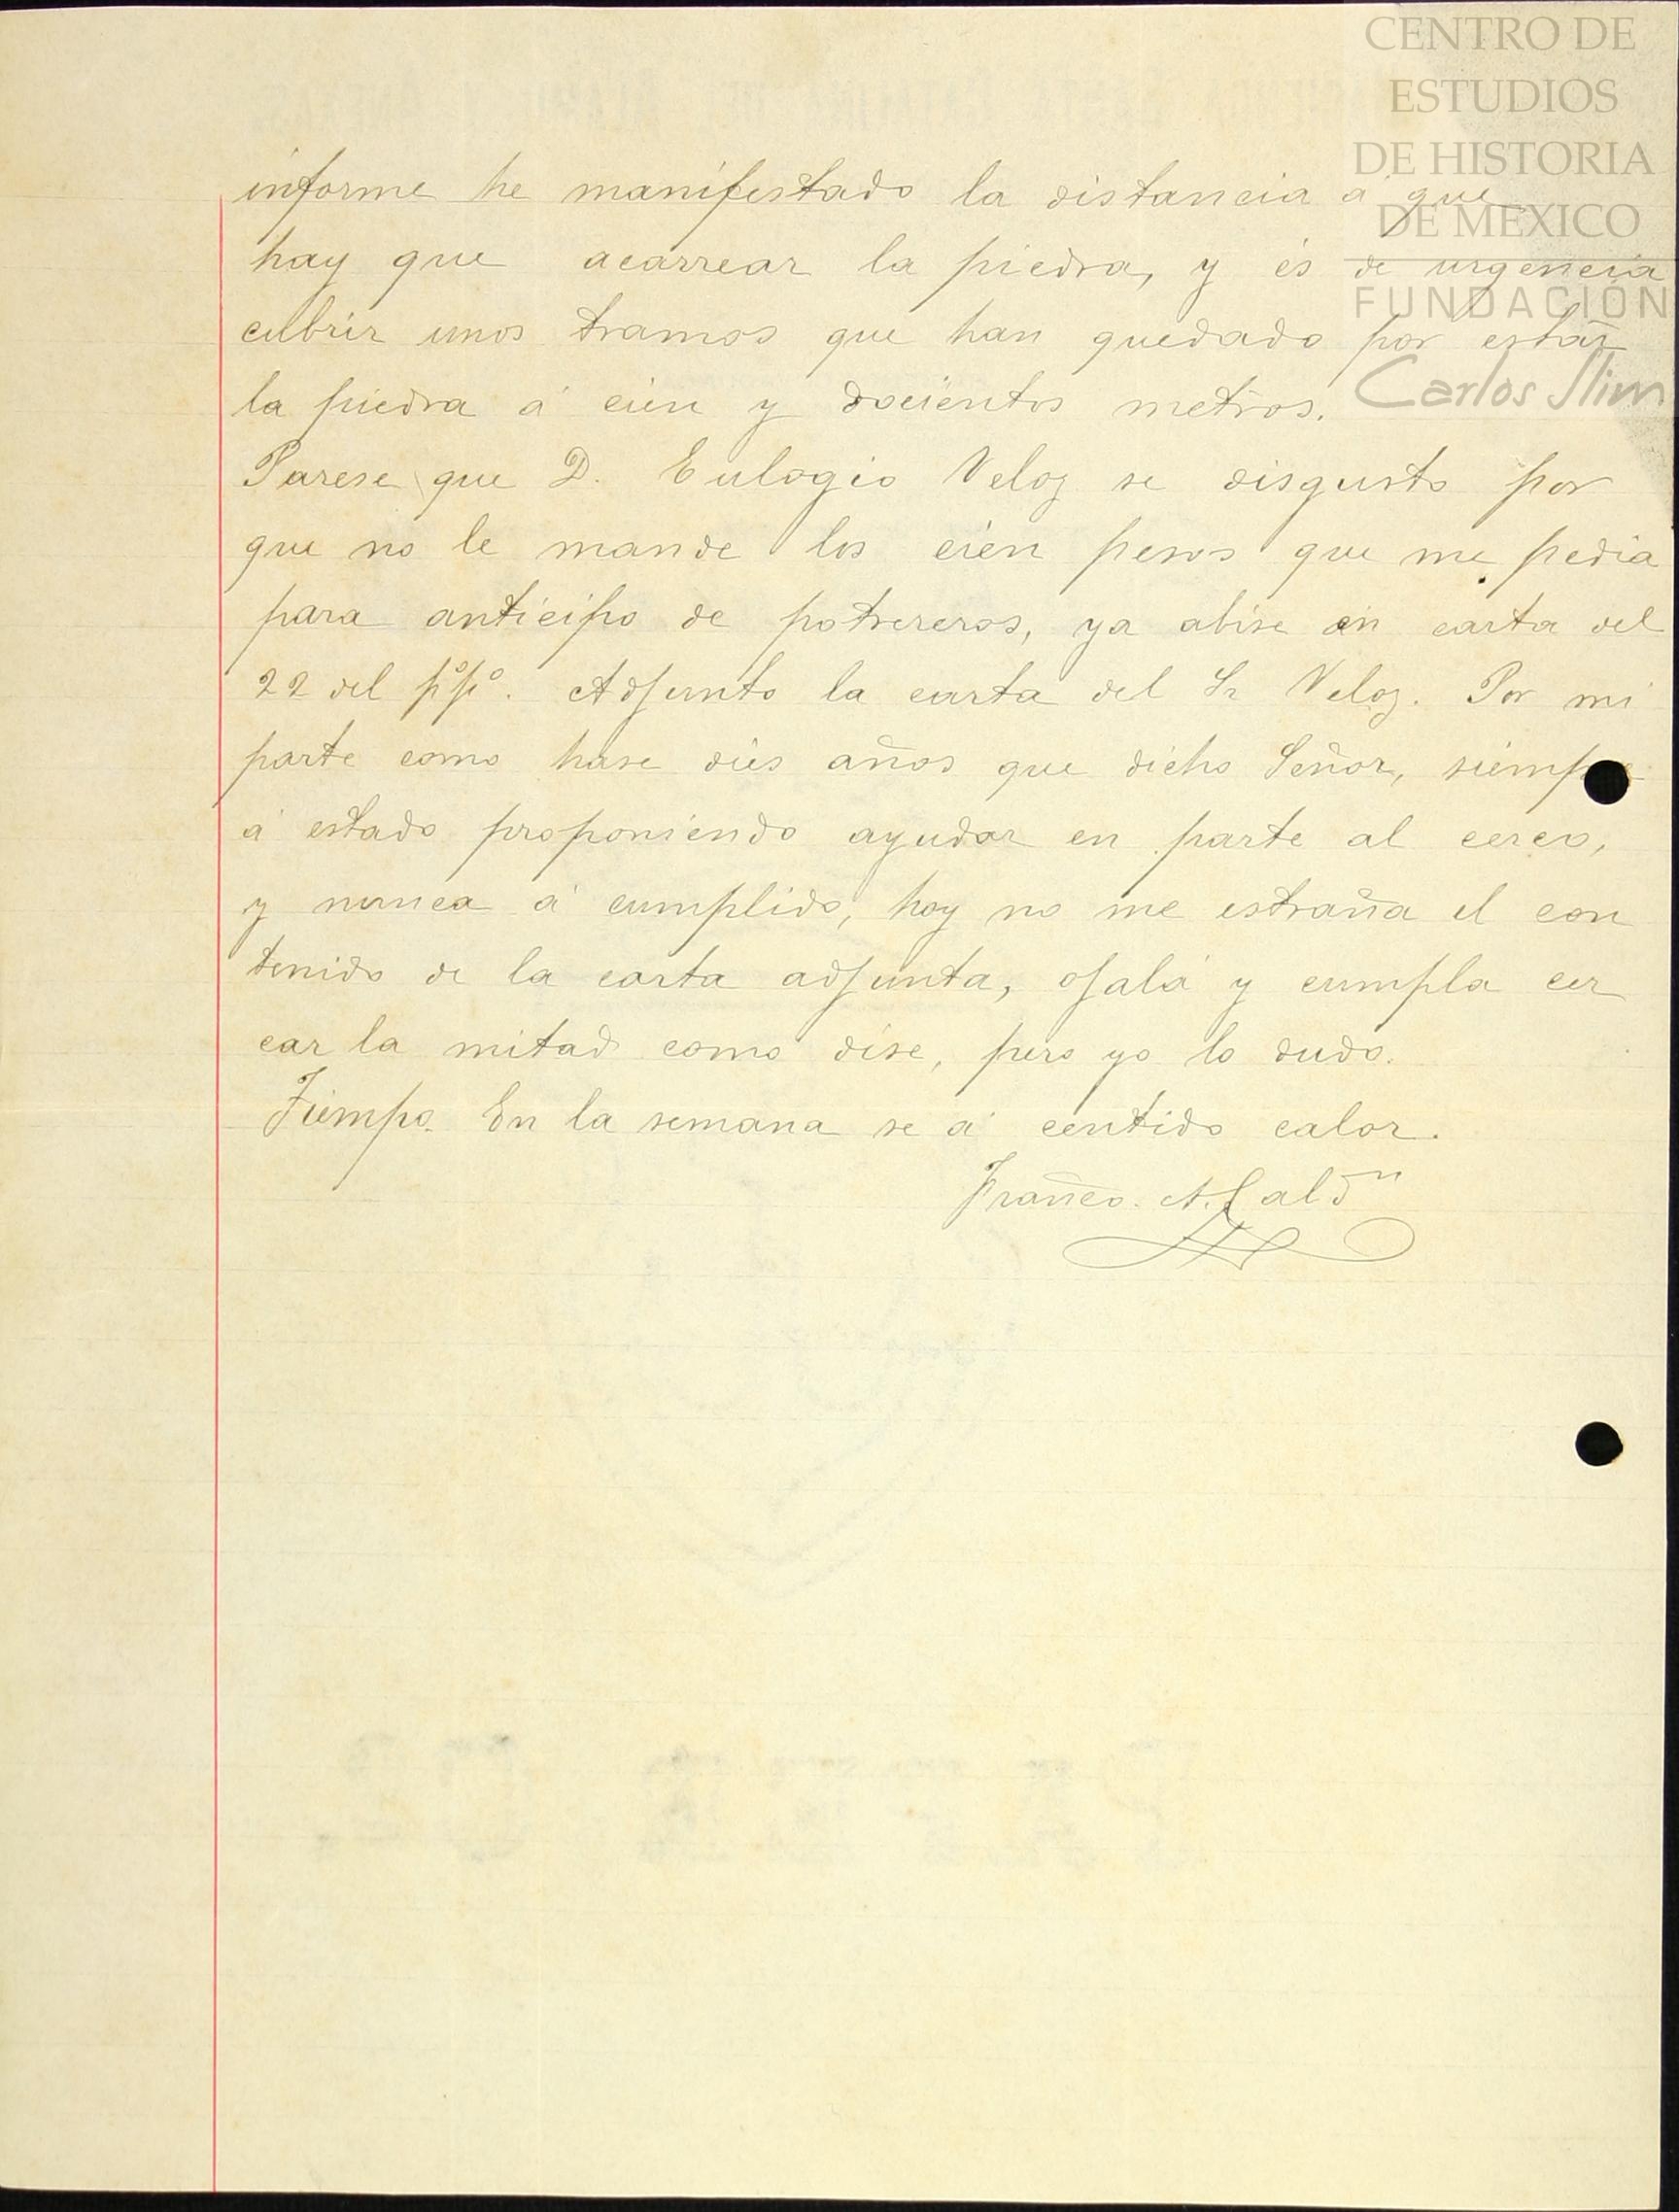 CENTRO DE
ESTUDIOS
DE HISTORIA
DE MEXICO
FUNDACIÓN
Carlos Slim
informe he manifestado la distancia á que
hay que acarrear la piedra, y és de urgencia
cubrir unos tramos que han quedado por estár
la piedra á cien y docientos metros.
Parese que D. Eulogio Veloz se disgusto por
que no le mande los cien pesos que me pedia
para anticipo de potrereros, ya abise en carta del
22 del p.º p.º. Adjunto la carta del Sr Veloz. Por mi
parte como hase dies años que dicho Señor, siempre
á estado proponiendo ayudar en parte al cerco,
y nunca á cumplido, hoy no me estraña el con
tenido de la carta adjunta, ojalá y cumpla cer
car la mitad como dise, pero yo lo dudo.
Tiempo. En la semana se á centido calor.
Franco. A. Caldn